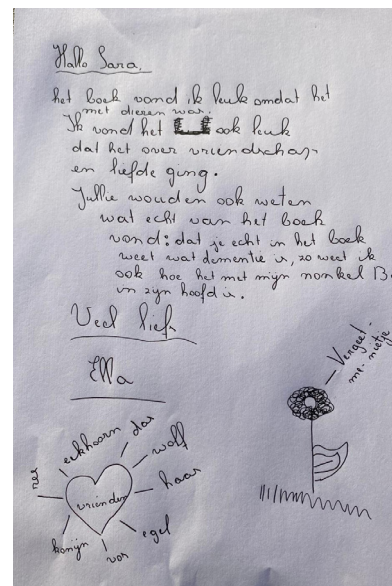 Hallo Sara,
het boek vond ik leuk omdat het
met dieren was.
Ik vond het ook leuk
dat het over vriendschap
en liefde ging.
Jullie wouden ook weten
wat echt van het boek
vond: dat je echt in het boek
weet wat dementie is, zo weet ik
ook hoe het met mijn nonkel B
in zijn hoofd is.
Veel liefs
Ella
Vergeet-
me-nietje
das
eekhoorn
wolf
ree
haas
vrienden
egel
konijn
vos